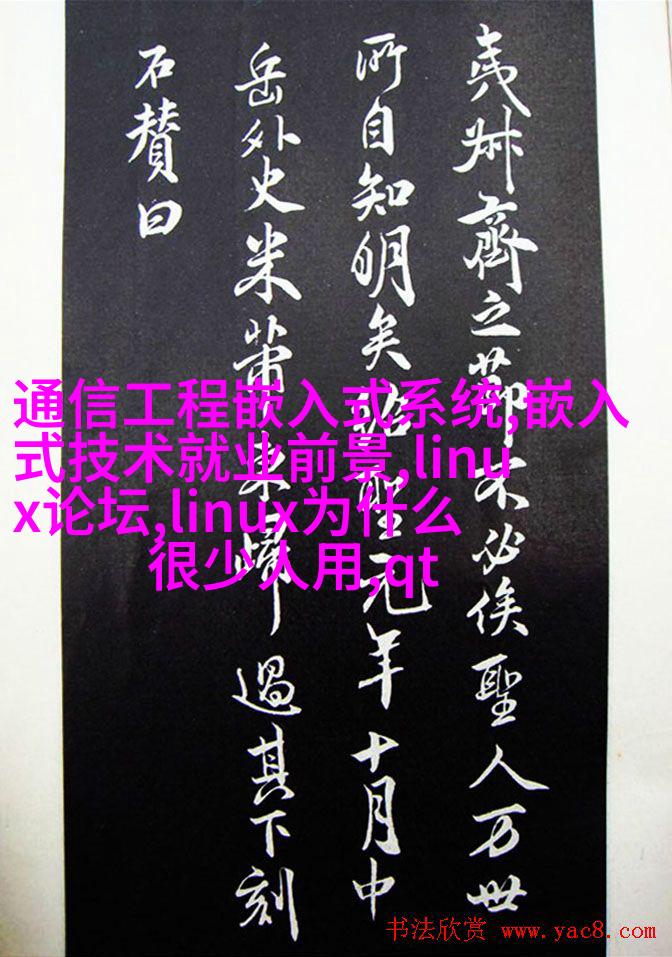 夷叔齊之節不必俟聖人万世
所自知明矣紹聖元年十月中
岳外史米芾東歸過其下刻
石賛曰
通信工程嵌入式系统,嵌入
式技术就业前景,linu
x论坛,linux为什么
很少人用,qt
书法欣赏 www.yac8.com